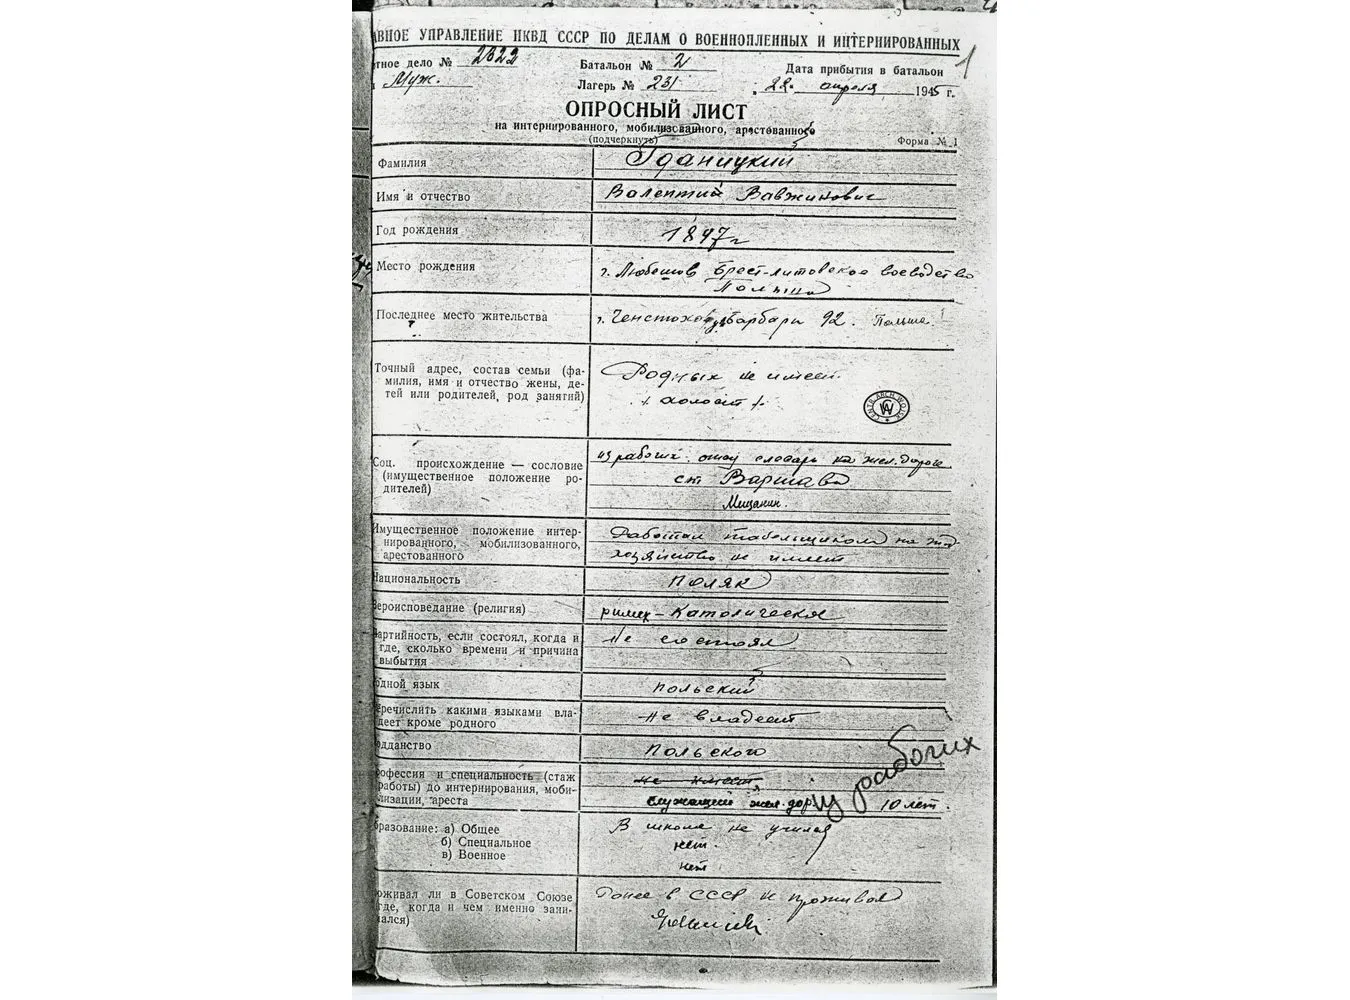 АВНОЕ УПРАВЛЕНИЕ НКВД СССР ПО ДЕЛАМ О ВОЕННОПЛЕННЫХ И ИНТЕРНИРОВАННЫХ
1
тное дело № 2322 Батальон № 2 Дата прибытия в батальон
Муж. Лагерь № 231 „22“ апреля 1945 г.
ОПРОСНЫЙ ЛИСТ
на интернированного, мобилизованного, арестованного
(подчеркнуть) Форма № 1
Фамилия Гданицкий
Имя и отчество Валентий Вавжинович
Год рождения 1897 г
Место рождения г. Любешов Брест-литовское воеводство
Польша
Последнее место жительства г. Ченстохов Варбари 92. Польша.
Точный адрес, состав семьи (фа- Родных не имеет.
милия, имя и отчество жены, де- холост
тей или родителей, род занятий)
CENTR. ARCH. WOJSK.
из рабочих отец слесарь на жел. дороге
Соц. происхождение — сословие
(имущественное положение ро- ст Варшава
дителей) Мещанин.
Имущественное положение интер- Работал табельщиком на
нированного, мобилизованного, хозяйство не имеет
арестованного
Национальность поляк
Вероисповедание (религия) римск-католическая
Партийность, если состоял, когда и Не состоял
где, сколько времени и причина
выбытия
одной язык польский
еречислить какими языками вла- не владеет
деет кроме родного
одданство польского
из рабочих
рофессия и специальность (стаж не имеет
работы) до интернирования, моби-
лизации, ареста служащий жел. дор 10 лет.
бразование: а) Общее В школе не учился
б) Специальное нет.
в) Военное нет
оживал ли в Советском Союзе Ранее в СССР не проживал
где, когда и чем именно зани-
мался)